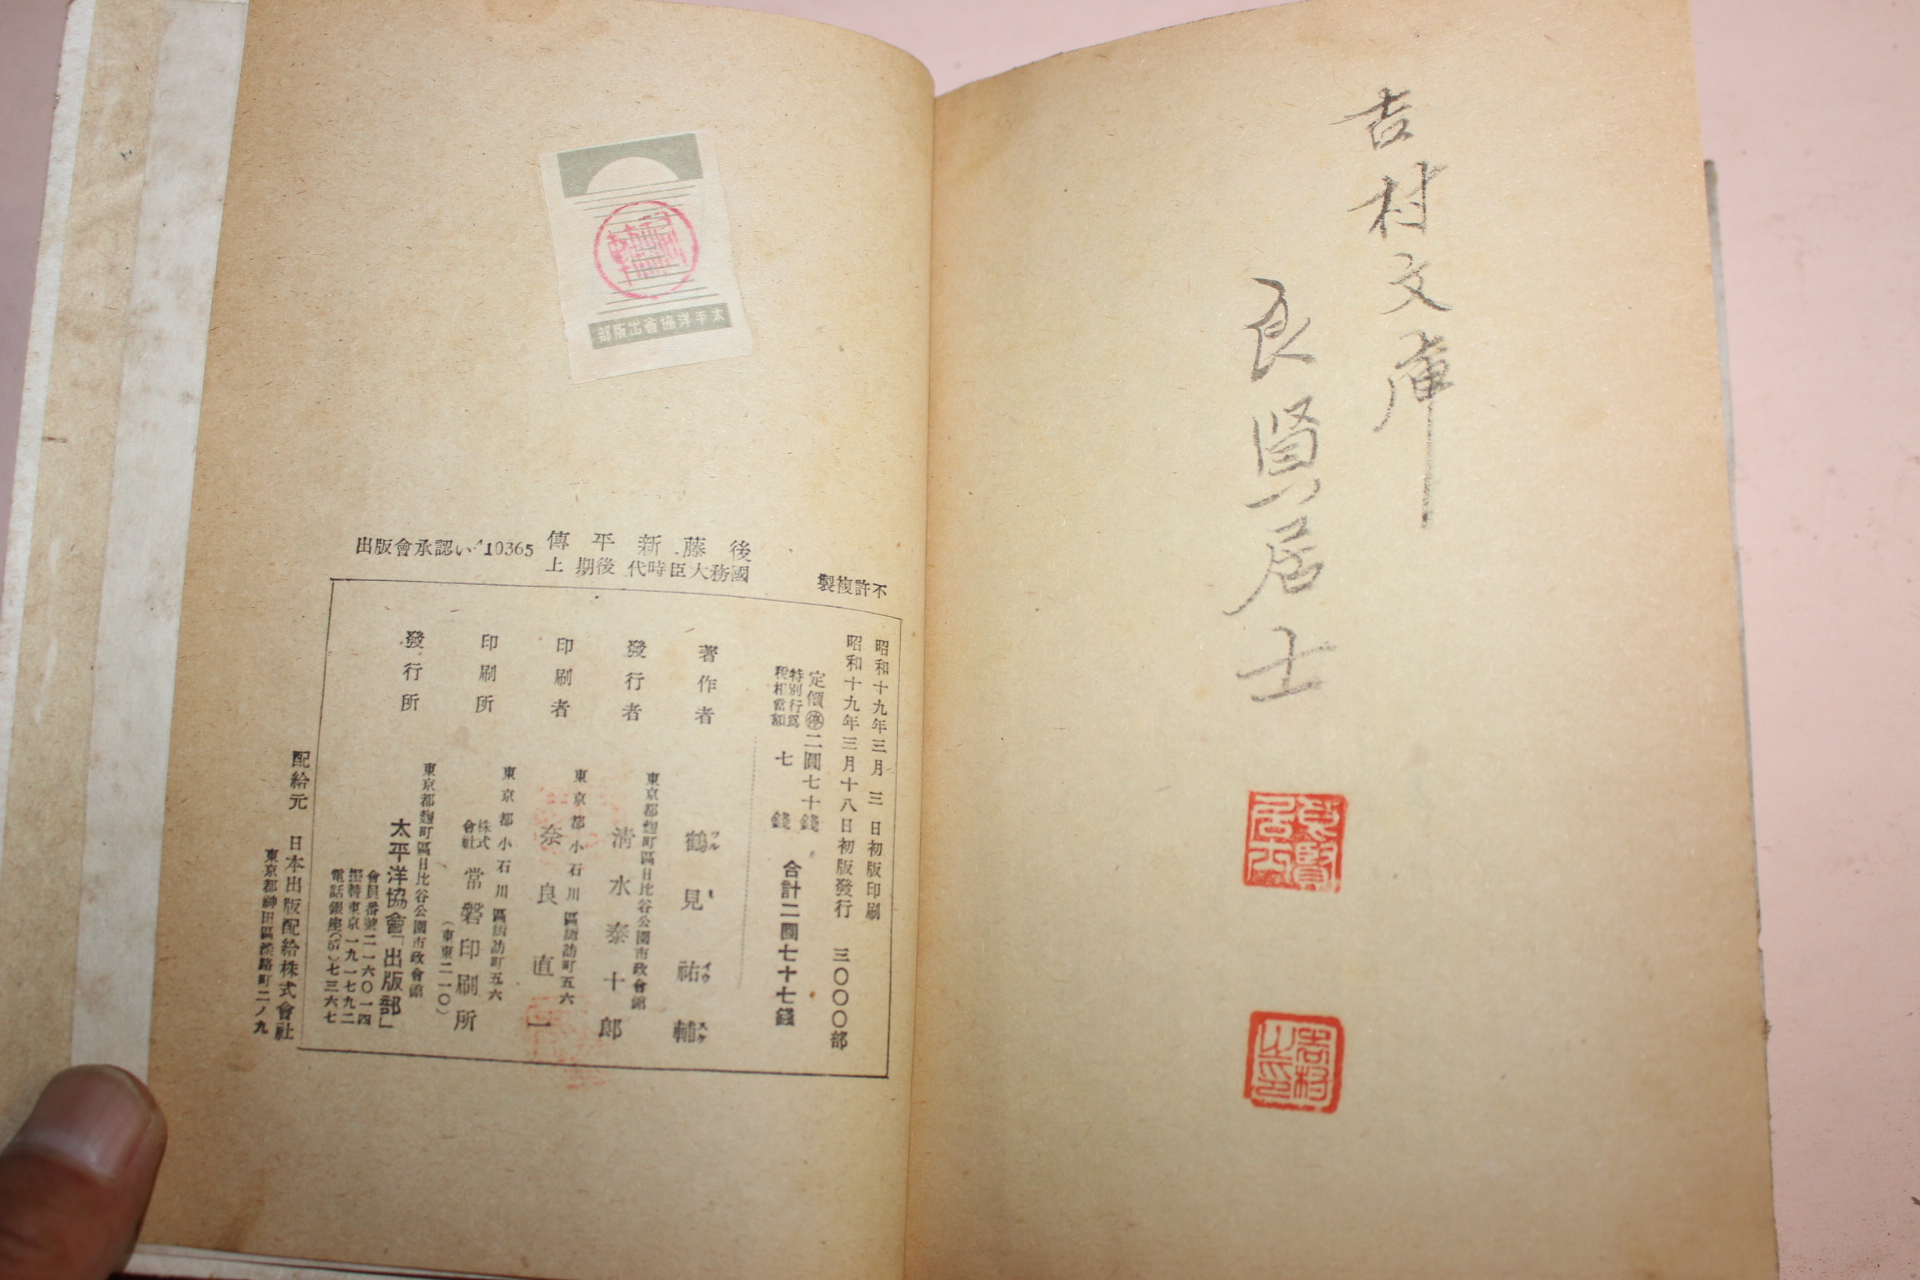 吉村文庫
良賢居士
良賢居士
吉村之印
太平洋協會出版部
後藤新平傳
國務大臣時代 後期 上
出版會承認い410365
不許複製
昭和十九年三月 三 日初版印刷
昭和十九年三月十八日初版發行 三〇〇〇部
定價㊡二圓七十錢
特別行爲税相當額 七錢
合計二圓七十七錢
著作者 鶴見祐輔
ツルミイウスケ
東京都麹町區日比谷公園市政會館
發行者 淸水泰十郎
東京都小石川區諏訪町五六
印刷者 奈良直一
東京都小石川區諏訪町五六
印刷所 株式會社 常磐印刷所
(東東二一〇)
東京都麹町區日比谷公園市政會館
發行所 太平洋協會「出版部」
會員番號二一六〇一四
振替東京一九一七九二
電話銀座(57)七三六七
配給元 日本出版配給株式會社
東京都神田區淡路町二ノ九